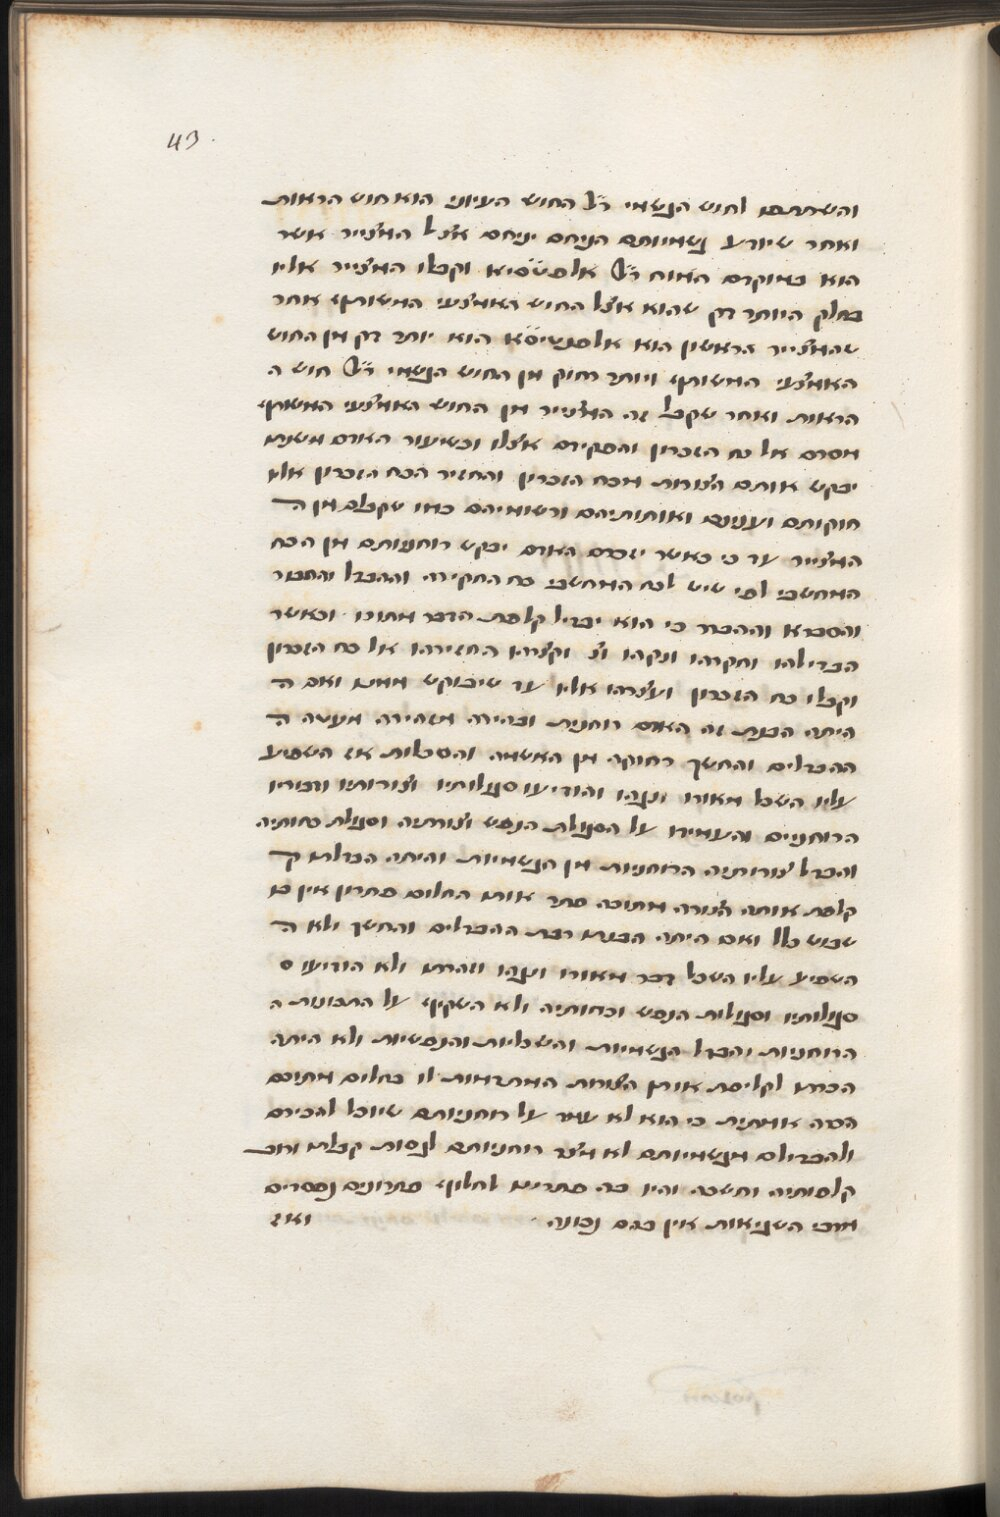 43
והשתתם לחוש הגשמי ר"ל החוש העיוני הוא חוש הראות
ואחר שיודע גשמיותם הניחם יניחם אצל המצייר אשר
הוא במוקדם המוח ר"ל אלפנטסיא וקבלו המצייר אליו
בחלק היותר דק שהוא אצל החוש האמצעי המשותף אחר
שהמצייר הראשון הוא אלפנטיסיא הוא יותר דק מן החוש
האמצעי המשותף ויותר רחוק מן החוש הגשמי ר"ל חוש ה
הראות ואחר שקבל זה המצייר מן החוש האמצעי המשותף
מסרם אל כח הזכרון והפקידם אצלו וכשיעור האדם משנתו
יבקש אותם הצורות מכח הזכרון והחזיר הכח הזכרון אליו
חוקותם וענינם ואותותיהם ורשומיהם כמו שקבלם מן ה
המצייר עד כי כאשר יזכרם האדם יבקש רוחניותם מן הכח
המחשבי לפי שיש לכח המחשבי כח החקירה וההבדל והחבור
והסברא וההכרה כי הוא יבדיל קלפת הדבר מתוכו וכאשר
הבדילהו וחקרהו ונקהו וקצרהו החזירהו אל כח הזכרון
וקבלו כח הזכרון ועצרהו אליו עד שיבוקש ממנו ואם ה
היתה הכנת זה האדם רוחנית ובהירה מזהירה מעטה ה
ההבדלים והחשך רחוקה מן האשמה והסכלות אז השפיע
עליו השכל מאורו ונגהו והודיעו סגולותיו וצורותיו ודבוריו
הרוחניים והעמידו על הסגולת הנפש וצורתיה וסגולת כחותיה
והבדל צורותיה הרוחניות מן הגשמיות והיתה הבדלתו ק
קלפת אותה הצורה מתוכה פתר אותו החלום פתרון אין בו
שבוש כלל ואם היתה הכנתו רבת ההבדלים והחשך ולא ה
השפיע עליו השכל דבר מאורו ונגהו וזהרתו ולא הודיעו ס
סגולותיו וסגולות הנפש וכחותיה ולא השקיף על התכונות ה
הרוחניות והבדל הגשמיות והשכליות והנפשיות ולא היתה
הכרתו לקליפת אותן הצורות המתדמות לו בחלום מתוכם
הכרה אמתית כי הוא לא עמד על רוחניותם שיוכל להכירם
ולהבדילם מגשמיותם לא מצד רוחניותם לגסות קבלתו ורוב
קלפותיה וחשכה והיו בה פתריתו לחלוף פתרונים נפסדים
מרבי השגיאות אין בהם נכונה ואז